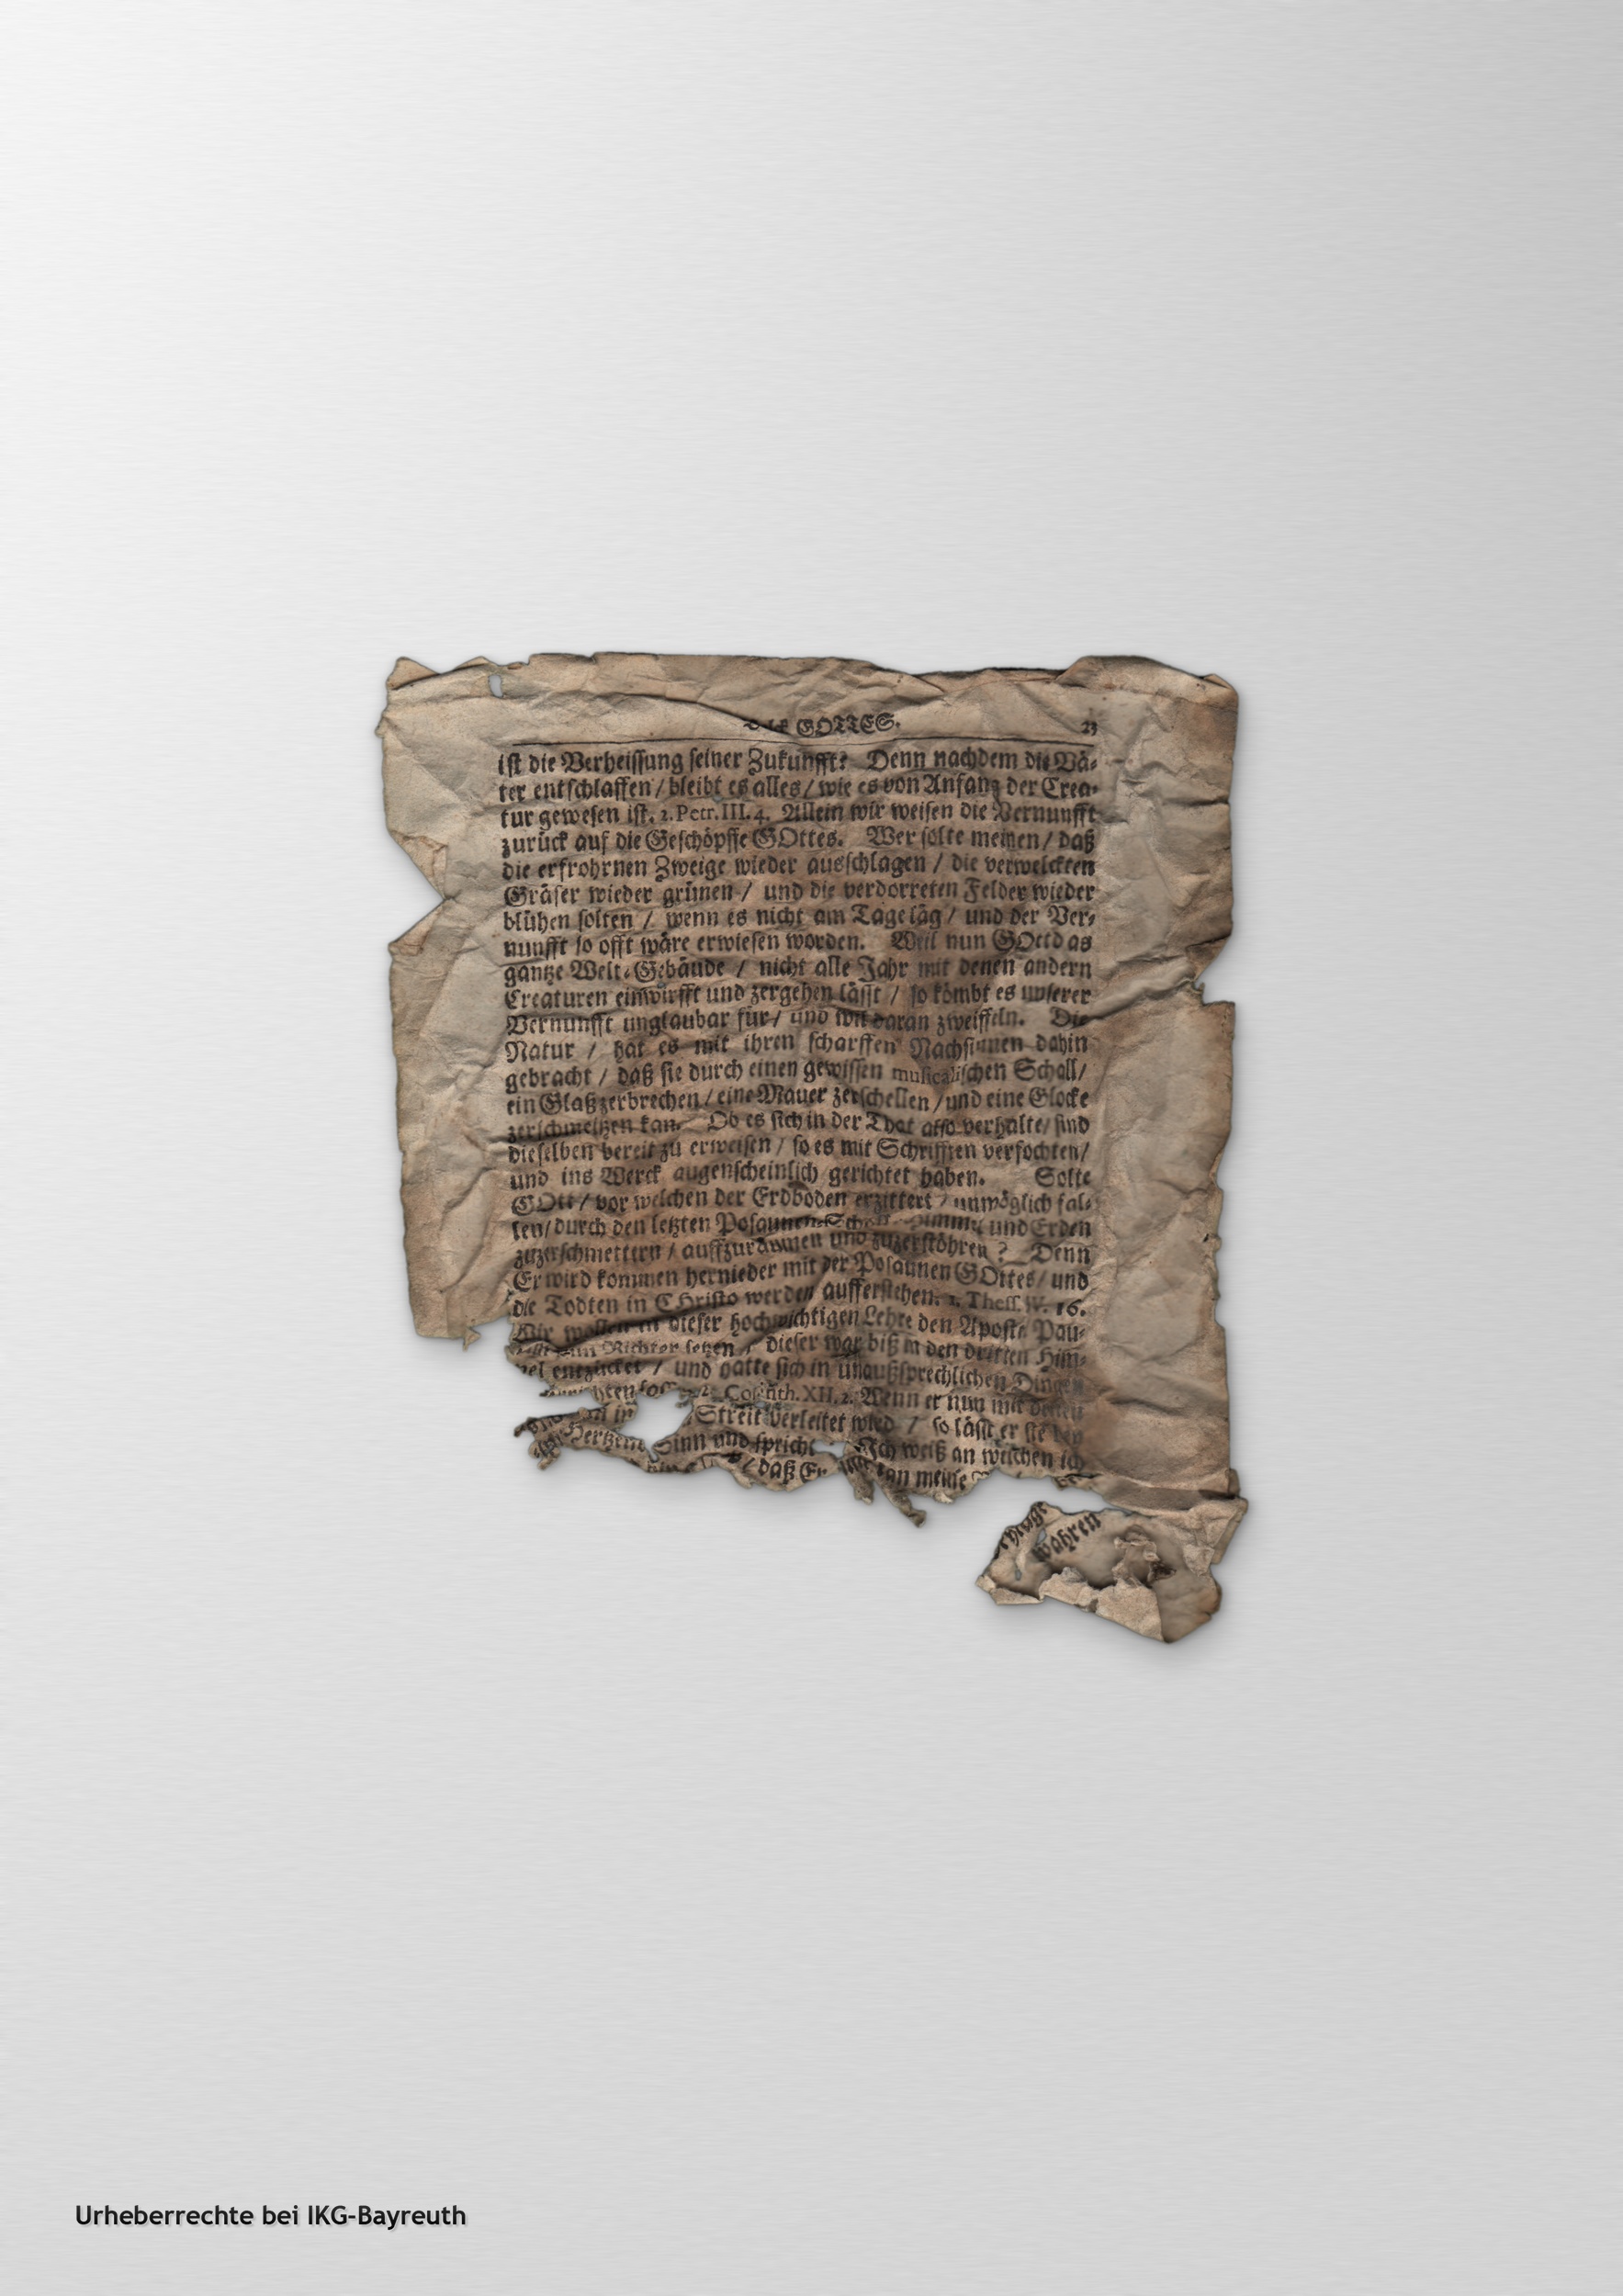 GOTTES. 23
ist die Verheissung seiner Zukunfft? Denn nachdem die Vä-
ter entschlaffen / bleibt es alles / wie es von Anfang der Crea-
tur gewesen ist. 2. Petr. III. 4. Allein wir weisen die Vernunfft
zurück auf die Geschöpffe GOttes. Wer solte meinen / daß
die erfrohrnen Zweige wieder ausschlagen / die verwelckten
Gräser wieder grünen / und die verdorreten Felder wieder
blühen solten / wenn es nicht am Tage läg / und der Ver-
nunfft so offt wäre erwiesen worden. Weil nun GOtt das
gantze Welt-Gebäude / nicht alle Jahr mit denen andern
Creaturen einwirfft und zergehen lässt / so kömbt es unserer
Vernunfft unglaubar für / und wil daran zweiffeln. Die
Natur / hat es mit ihren scharffen Nachsinnen dahin
gebracht / daß sie durch einen gewissen musicalischen Schall /
ein Glaß zerbrechen / eine Mauer zerschellen / und eine Glocke
zerschmeltzen kan. Ob es sich in der That also verhalte / sind
dieselben bereit zu erweisen / so es mit Schrifften verfochten /
und ins Werck augenscheinlich gerichtet haben. Solte
GOtt / vor welchen der Erdboden erzittert / unmöglich fal-
len / durch den letzten Posaunen-Schall Himmel und Erden
zuzerschmettern / auffzuräumen und zuzerstöhren? Denn
Er wird kommen hernieder mit der Posaunen GOttes / und
die Todten in CHristo werden aufferstehen. 1. Thess. IV. 16.
Wir wollen in dieser hochwichtigen Lehre den Apostel Pau-
zum Richter setzen / dieser war biß in den dritten Him-
mel entzücket / und hatte sich in unaußsprechlichen Dingen
Corinth. XII. 2. Wenn er nun mit denen
in Streit verleitet wird / so lässt er sie bey
Hertzens Sinn und spricht Ich weiß an welchen ich
/ daß Er kan meine
wahren
Urheberrechte bei IKG-Bayreuth